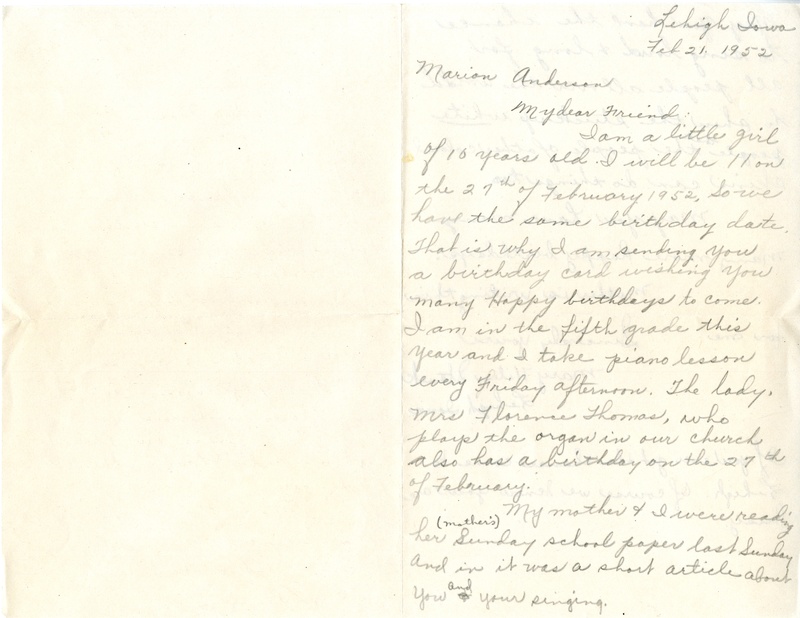 Lehigh Iowa
Feb 21, 1952
Marion Anderson
My dear Friend:
I am a little girl
of 10 years old. I will be 11 on
the 27th of February 1952, So we
have the same birthday date.
That is why I am sending you
a birthday card wishing you
many Happy birthdays to come.
I am in the fifth grade this
year and I take piano lesson
every Friday afternoon. The lady,
Mrs Florence Thomas, who
plays the organ in our church
also has a birthday on the 27th
of February.
My mother & I were reading
(mother's)
her Sunday school paper last Sunday
And in it was a short article about
you and your singing.